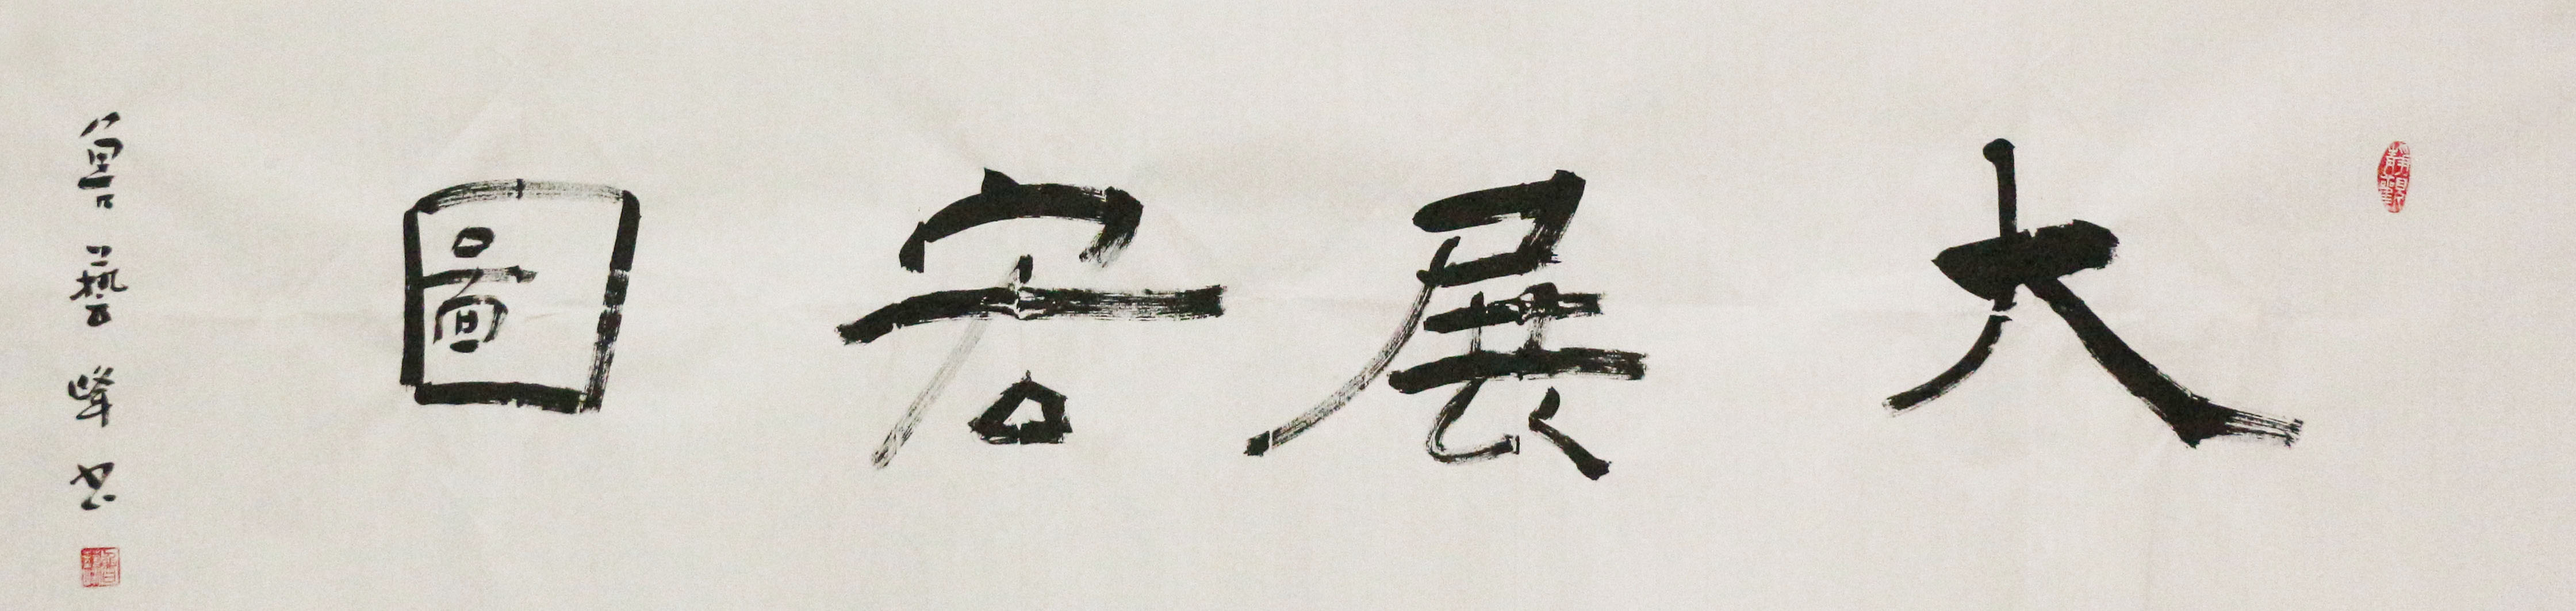 大展宏圖
魯藝峰书